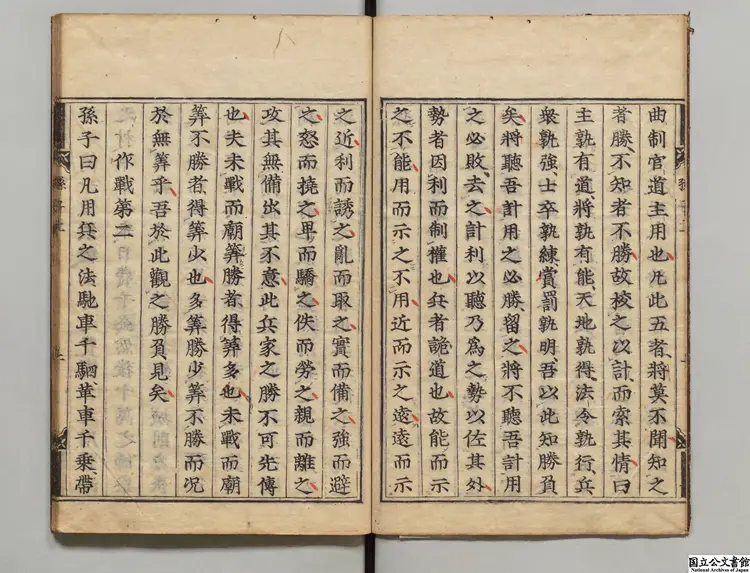 曲制官道主用也凡此五者將莫不聞知之
者勝不知者不勝故校之以計而索其情曰
主孰有道將孰有能天地孰得法令孰行兵
衆孰強士卒孰練賞罰孰明吾以此知勝負
矣將聽吾計用之必勝留之將不聽吾計用
之必敗去之計利以聽乃為之勢以佐其外
勢者因利而制權也兵者詭道也故能而示
之不能用而示之不用近而示之遠遠而示
之近利而誘之亂而取之實而備之強而避
之怒而撓之卑而驕之佚而勞之親而離之
攻其無備出其不意此兵家之勝不可先傳
也夫未戰而廟筭勝者得筭多也未戰而廟
筭不勝者得筭少也多筭勝少筭不勝而况
於無筭乎吾於此觀之勝負見矣
作戰第二
孫子曰凡用兵之法馳車千駟革車千乗帶
国立公文書館
National Archives of Japan